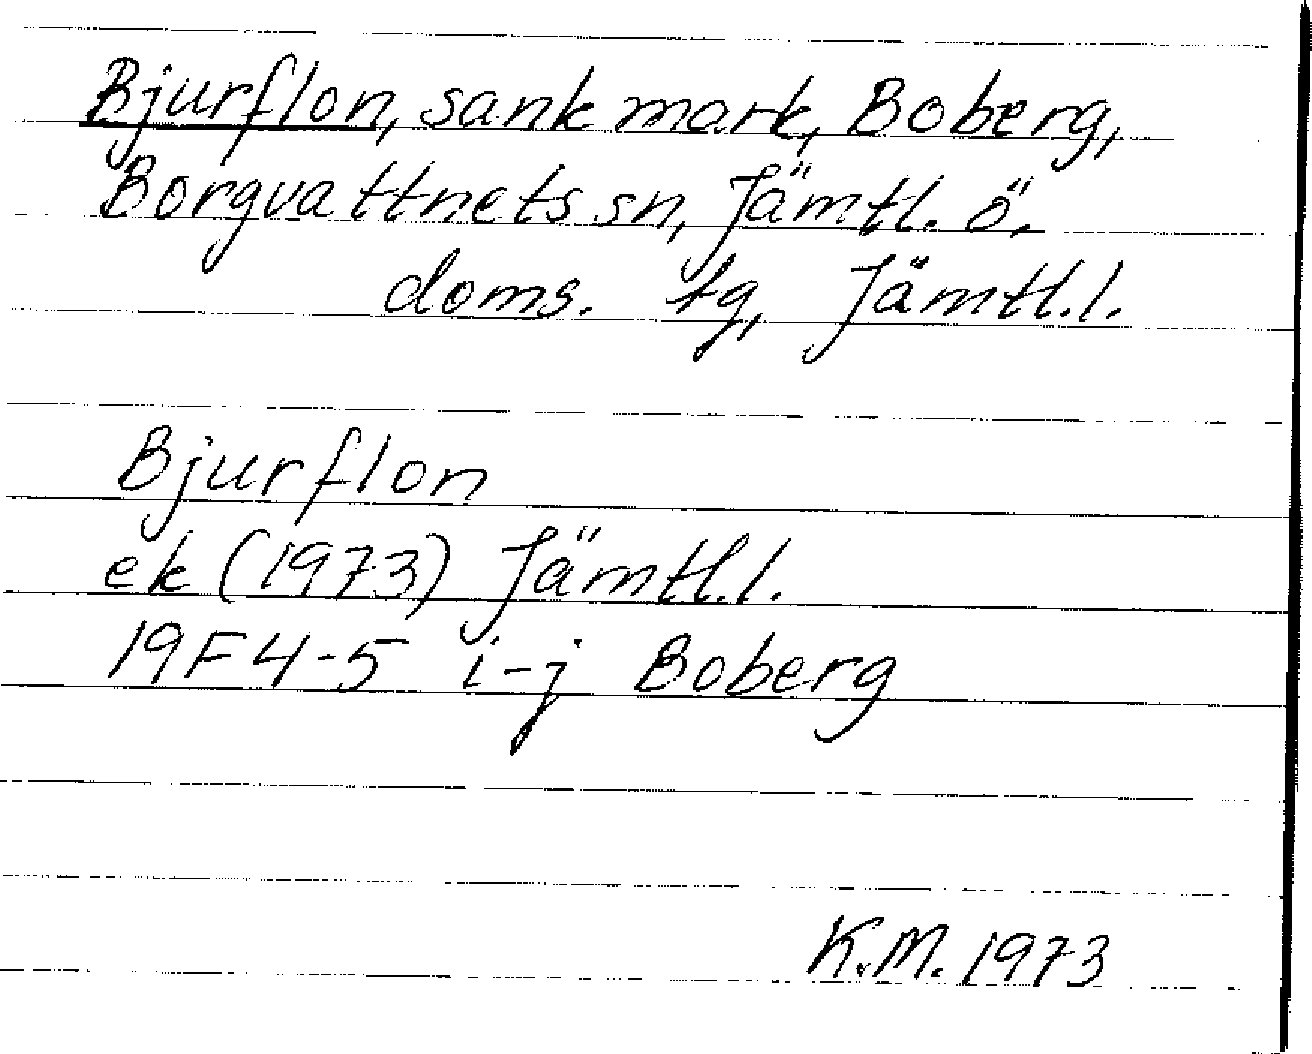 Bjurflon, sank mark, Boberg,
Borgvattnets sn, Jämtl. ö.
doms. tg, Jämtl.l.
Bjurflon
ek (1973) Jämtl.l.
19F4-5 i-j Boberg
K.M. 1973